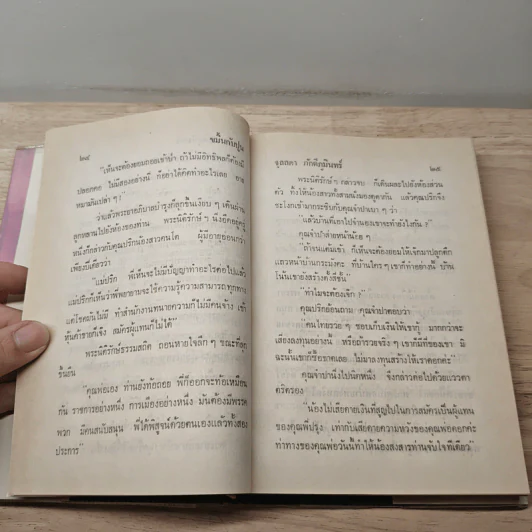 ๒๔
ขมิ้นกับปูน
"เห็นจะต้องยอมถอยเข้าป่า ถ้าไม่มีอิทธิพลก็ต้องมี
ปลอกคอ ไม่มีสองอย่างนี้ ก็อย่าได้คิดทำอะไรเลย อาย
หมามันเปล่า ๆ"
ว่าแล้วพระยาอภิบาลบำรุงก็ลุกขึ้นเงียบ ๆ เดินผ่าน
ลูกหลานไปยังห้องของท่าน พระนิติรักษ์ ๆ นั่งคิดอยู่ครู่
หนึ่งก็กล่าวกับคุณปริกน้องสาวคนโต ผู้มีอายุอ่อนกว่า
เพียงปีเดียวว่า
"แม่ปริก พี่เห็นจะไม่มีปัญญาทำอะไรต่อไปแล้ว
แม่ปริกก็เห็นว่าพี่พยายามจะใช้ความรู้ความสามารถทุกทาง
แต่โชคมันไม่มี ทำสำนักงานทนายความก็ไม่มีคนจ้าง เข้า
หุ้นค้าขายก็เจ๊ง สมัครผู้แทนก็ไม่ได้"
พระนิติรักษ์ธรรมสถิต ถอนหายใจลึก ๆ ขณะที่ลุก
ขึ้นยืน
"คุณพ่อเอง ท่านยังท้อถอย พี่ก็ออกจะท้อเหมือน
กัน ราชการอย่างหนึ่ง การเมืองอย่างหนึ่ง มันต้องมีพรรค
พวก มีคนสนับสนุน พี่ได้พิสูจน์ด้วยตนเองแล้วทั้งสอง
ประการ"
จุลลดา ภักดีภูมินทร์
๒๕
พระนิติรักษ์ ๆ กล่าวจบ ก็เดินเลยไปยังห้องส่วน
ตัว ทิ้งให้น้องสาวทั้งสามนั่งมองดูตากัน แล้วคุณปริกจึง
ชะโงกเข้ามากระซิบกับคุณจำปาเบา ๆ ว่า
"แล้วบ้านที่เอาไปจำนองเขาจะทำยังไงกัน ?"
คุณจำปาส่ายหน้าน้อย ๆ
"ถ้าจนแต้มเข้า ก็เห็นจะต้องยอมให้เจ้คุณาปลูกตึก
แถวหน้าบ้านกระมังคะ ที่บ้านใคร ๆ เขาก็ทำอย่างนี้ บ้าน
โน้นเขายังสร้างตั้งสี่ชั้น"
"ทำไมจะต้องเจ้ก ?"
คุณปริกย้อนถาม คุณจำปาตอบว่า
"คนไทยรวย ๆ ชอบเก็บเงินให้เขากู้ มากกว่าจะ
เสี่ยงลงทุนอย่างนั้น หรือถ้ารวยจริง ๆ เขาก็มีที่ของเขา มิ
ฉะนั้นเขาก็ซื้อขาดเลย ไม่มาลงทุนสร้างให้เราดอกค่ะ"
คุณจำปานิ่งไปนิดหนึ่ง จึงกล่าวต่อไปด้วยแววตา
ตริตรอง
"น้องไม่เสียดายเงินที่สูญไปในการสมัครเป็นผู้แทน
ของคุณพี่บำรุง เท่ากับเสียดายความหวังของคุณพ่อดอกค่ะ
ท่าทางของคุณพ่อวันนี้ทำให้น้องสงสารท่านจับใจทีเดียว"